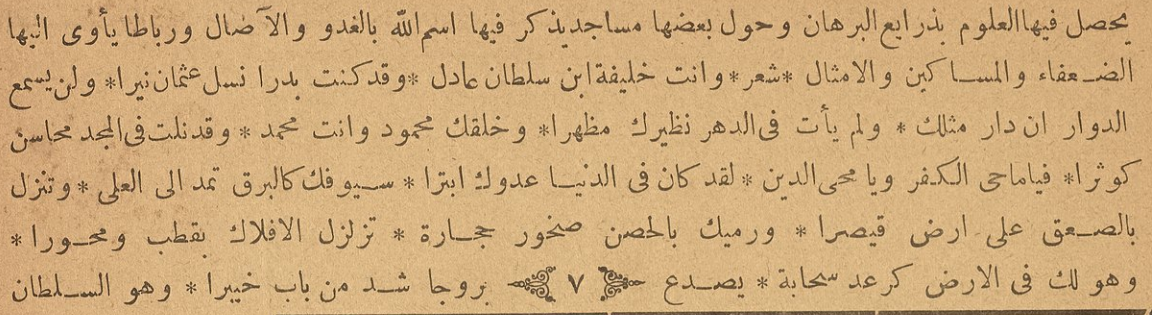 يحصل فيها العلوم بذرايع البرهان وحول بعضها مساجد يذكر فيها اسم الله بالغدو والآضال ورباطا يأوى اليها
الضعفاء والمساكين والامثال * شعر * وانت خليفة ابن سلطان عادل * وقد كنت بدرا نسل عثمان نيرا * ولن يسمع
الدوار ان دار مثلك * ولم يأت فى الدهر نظيرك مظهرا * وخلقك محمود وانت محمد * وقد نلت فى المجد محاسن
كوثرا * فيا ماحى الكفر ويا محى الدين * لقد كان فى الدنيا عدوك ابترا * سيوفك كالبرق تمد الى العلى * وتنزل
بالصعق على ارض قيصرا * ورميك بالحصن صخور حجارة * تزلزل الافلاك بقطب ومحورا *
وهو لك فى الارض كرعد سحابة * يصدع ٧ بروجا شد من باب خيبرا * وهو السلطان